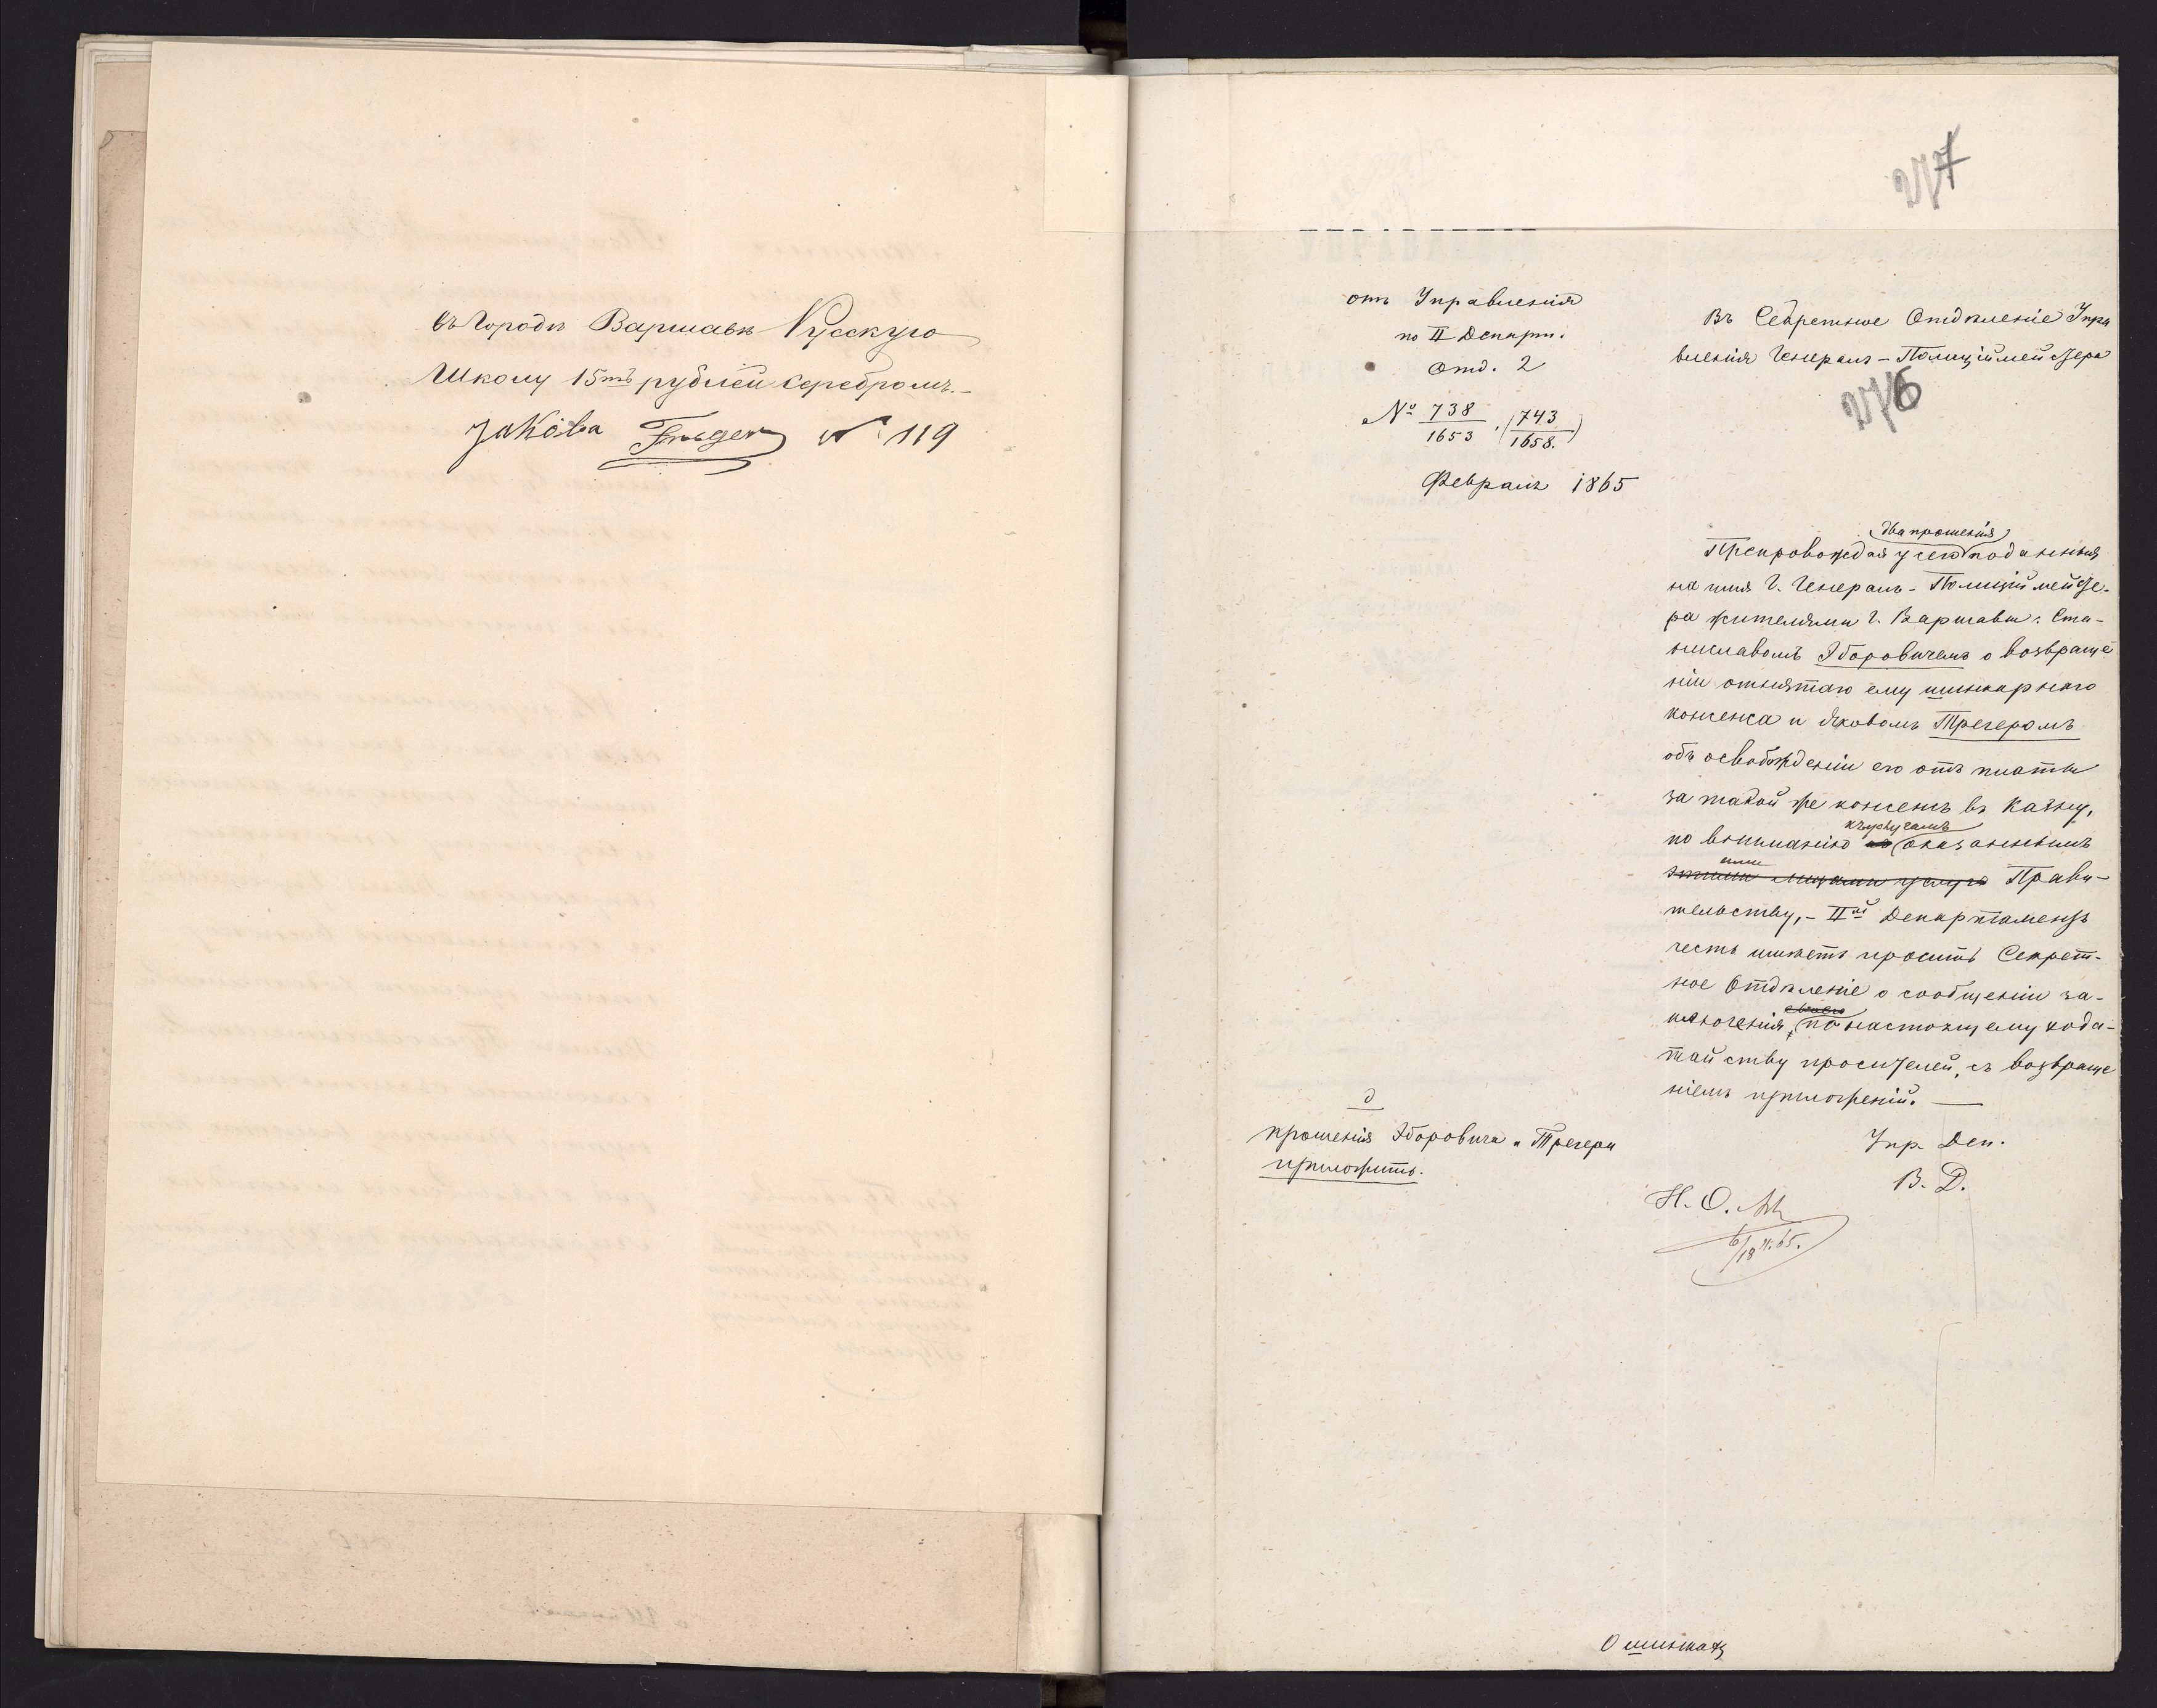 въ городѣ Варшавѣ Русскую
Школу 15ть рублей серебромъ.
Якова Трегер № 119
277
отъ Управленія
по II Департ.
Отд. 2
№ 738/1653, (743/1658.)
Февраля 1865
Въ Секретное Отдѣленіе Упра
вленія Генералъ-Полиціймейстера
276
два прошенія
Препровождая у сего поданныя
на имя Г. Генералъ-Полиціймейсте-
ра жителями г. Варшавы: Ста-
ниславомъ Зборовичемъ о возвраще
ніи отнятаго ему шинкарнаго
консенса и Яковомъ Трегеромъ
объ освобожденіи его отъ платы
за такой же консенсъ въ Казну,
къ услугамъ
по вниманію оказаннымъ
ими
этими лицами услугъ Прави-
тельству, - IIй Департаментъ
честь имѣетъ просить Секрет-
ное Отдѣленіе о сообщеніи за-
своего
ключенія, по настоящему хода-
тайству просителей, съ возвраще
ніемъ приложеній.
Упр. Деп.
В. Д.
Н. О.
6/18 II. 65.
прошенія Зборовича и Трегера
приложить.
О шинкахъ